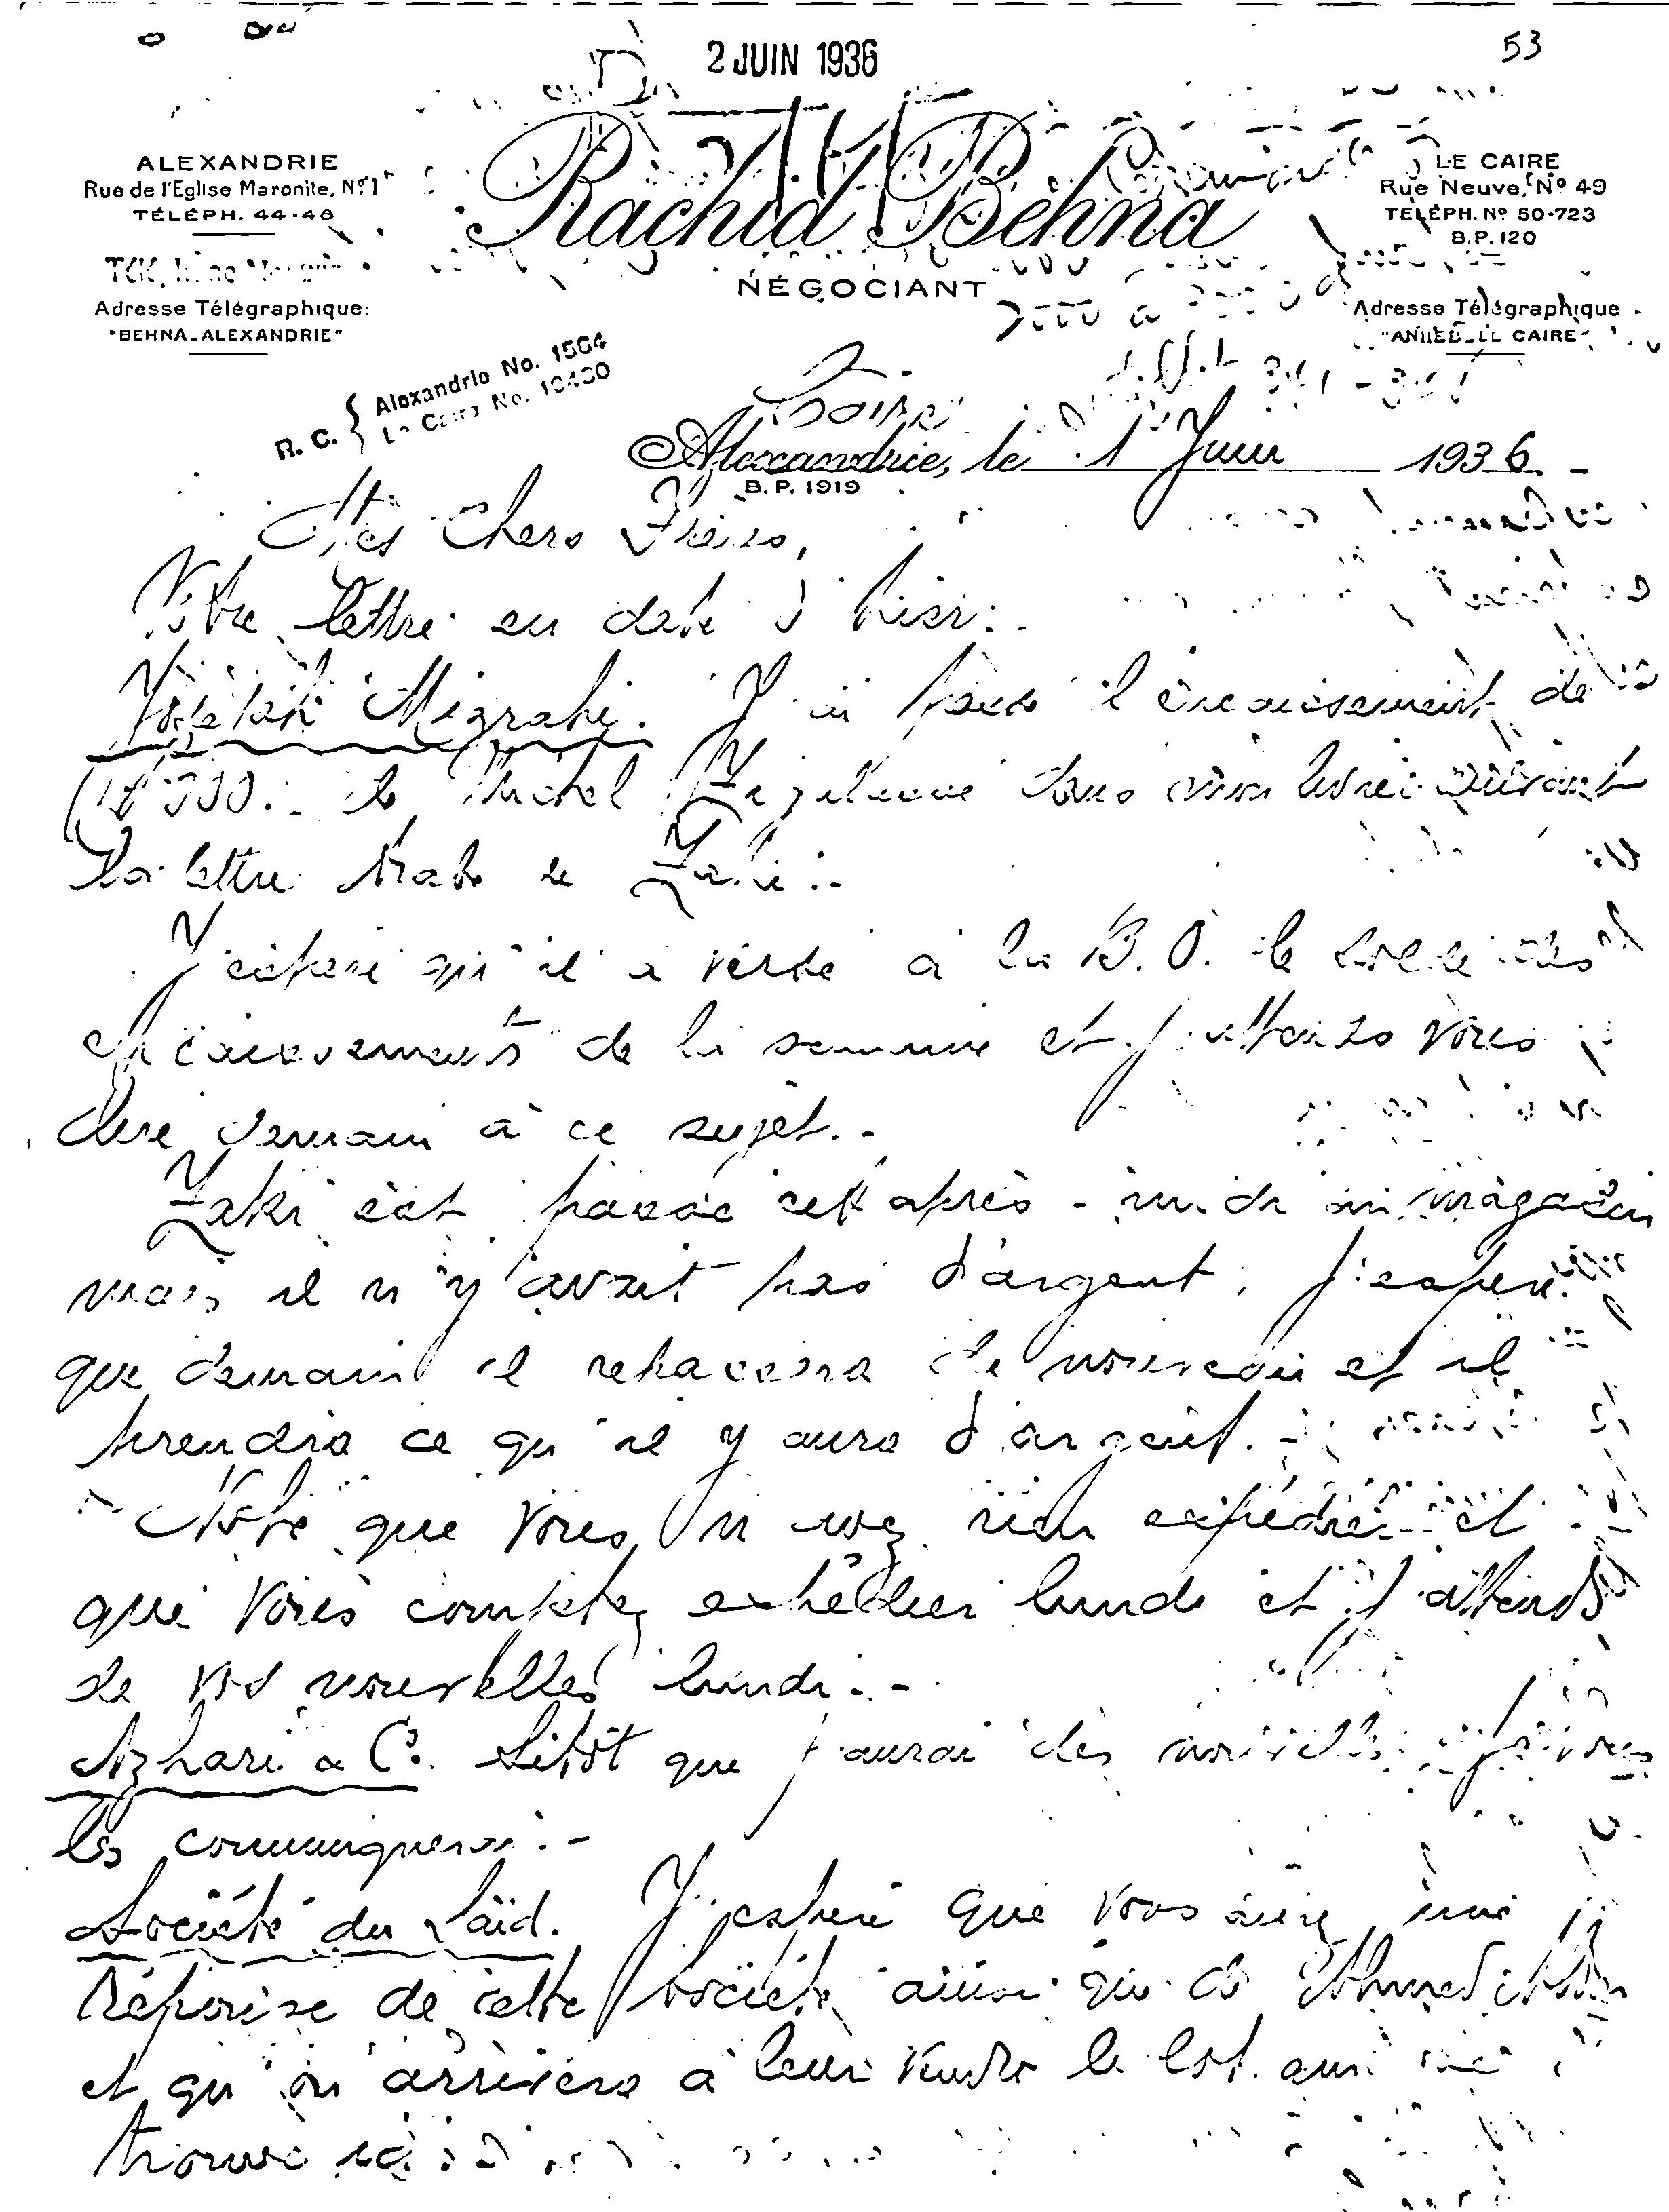 2 JUIN 1936
53
ALEXANDRIE
Rue de l'Eglise Maronite, Nº 1
TÉLÉPH. 44-48
Adresse Télégraphique:
"BEHNA-ALEXANDRIE"
Rachid Behna
NÉGOCIANT
LE CAIRE
Rue Neuve, Nº 49
TÉLÉPH. Nº 50-723
B.P. 120
Adresse Télégraphique
LE CAIRE"
R. C. { Alexandrie No. 1564
Le Caire No. 10430
Alexandrie, le 1 Juin 1936.-
B.P. 1919
Mes Chers Frères,
Votre lettre en date d'hier:
Mizrahi. J'ai l'encaissement de
dans mon suivant
la lettre Arabe de Zaki.-
J'espère qu'il a versé à la B.O. le solde des
encaissements de la semaine et j'attends vous
lire demain à ce sujet.-
Zaki est passé cet après-midi au magasin
mais il n'y avait pas d'argent, j'espère
que demain il repassera de nouveau et il
prendra ce qu'il y aura d'argent.-
Noté que vous n'avez rien expédié et
que vous comptez expédier lundi et j'attends
de vos nouvelles lundi.-
Azhari & Cº. Sitôt que j'aurai des nouvelles je vous
les communiquerai.-
Société du Saïd. J'espère que vous aurez une
réponse de cette Société ainsi que de Ahmed
et qu'on arrivera à leur vendre le lot qui se
trouve ici